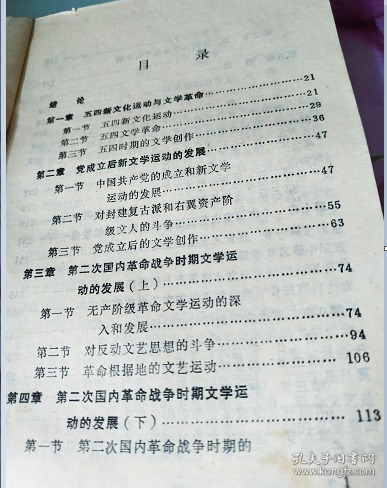 目 录
绪 论
第一章 五四新文化运动与文学革命……………21
第一节 五四新文化运动……………21
第二节 五四文学革命……………29
第三节 五四时期的文学创作……………36
第二章 党成立后新文学运动的发展……………47
第一节 中国共产党的成立和新文学
运动的发展……………47
第二节 对封建复古派和右翼资产阶
级文人的斗争……………55
第三节 党成立后的文学创作……………63
第三章 第二次国内革命战争时期文学运
动的发展（上）……………74
第一节 无产阶级革命文学运动的深
入和发展……………74
第二节 对反动文艺思想的斗争……………94
第三节 革命根据地的文艺运动……………106
第四章 第二次国内革命战争时期文学运
动的发展（下）……………113
第一节 第二次国内革命战争时期的
孔夫子旧书网